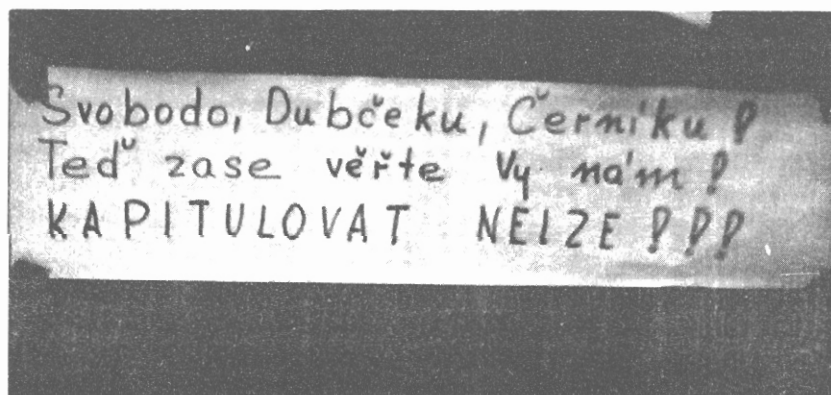 Svobodo, Dubčeku, Černíku!
Teď zase věřte Vy nám!
KAPITULOVAT NELZE!!!